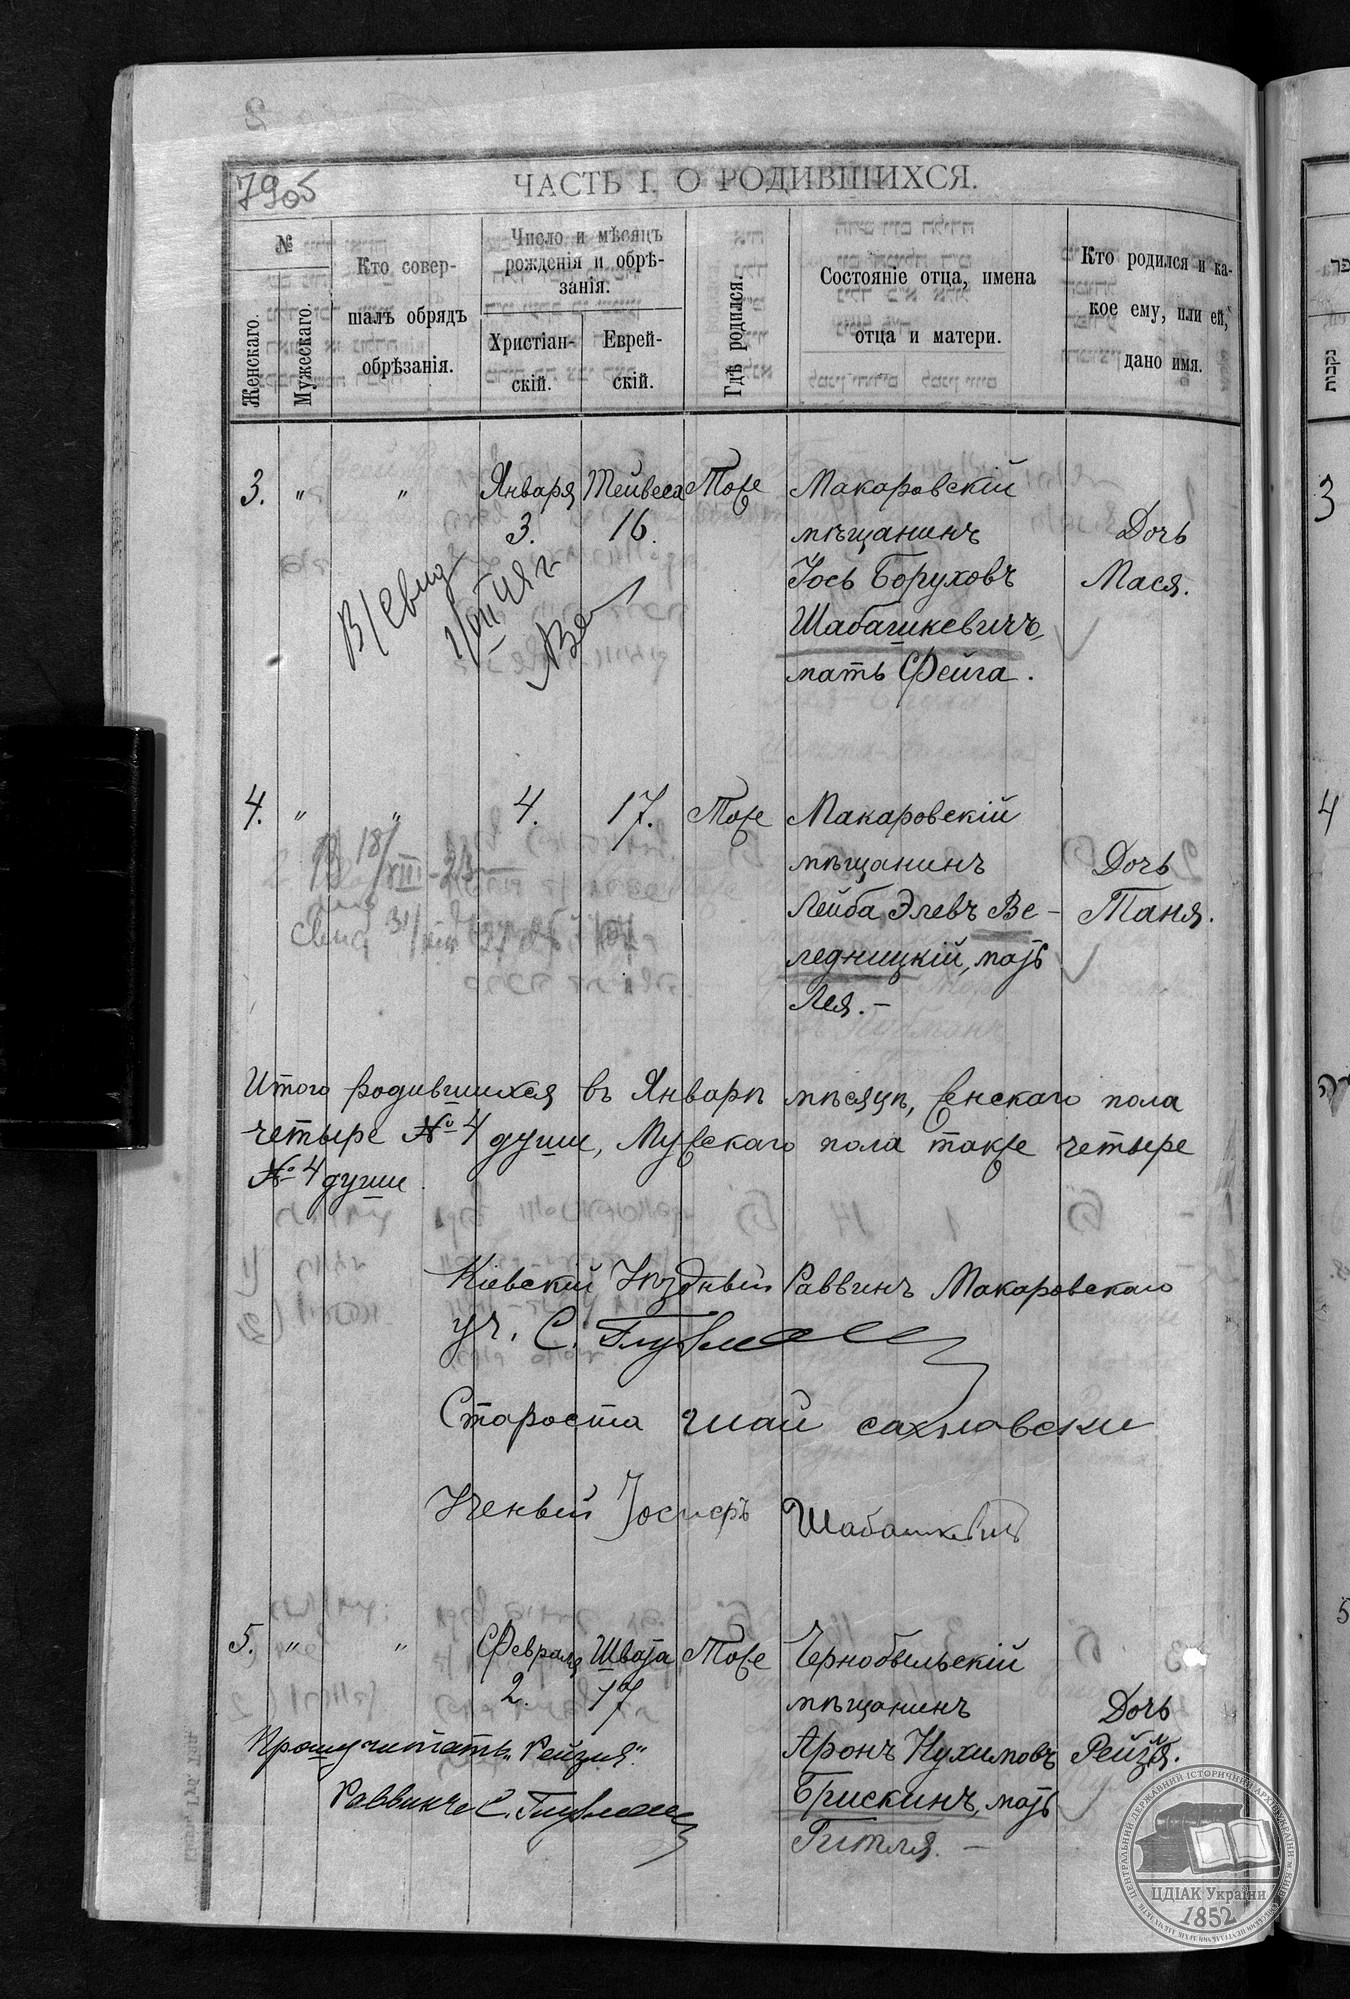 7905
ЧАСТЬ I. О РОДИВШИХСЯ.
№
Женскаго.
Мужескаго.
Кто совер-
шалъ обрядъ
обрѣзанія.
Число и мѣсяцъ
рожденія и обрѣ-
занія.
Христіан-
скій.
Еврей-
скій.
Гдѣ родился.
Состояніе отца, имена
отца и матери.
Кто родился и ка-
кое ему, или ей,
дано имя.
3. " " Января Тейвеса Тоже Макаровскій
3. 16. мѣщанинъ Дочь
Іось Боруховъ Мася.
Шабашкевичъ,
мать Фейга.
4. " " 4. 17. Тоже Макаровскій
мѣщанинъ Дочь
Лейба Элевъ Ве- Таня.
ледницкій, мать
Лея. -
Итого родившихся въ Январѣ мѣсяцѣ, Женскаго пола
четыре № 4 души, Мужскаго пола также четыре
№ 4 души
Кіевскій Уѣздный Раввинъ Макаровскаго
уч. С. Глузман
Староста Шай
Ученый Іосифъ Шабашкевичъ
5. " " Февраля Швата Тоже Чернобыльскій
2. 17 мѣщанинъ Дочь
Аронъ Нухимовъ Рейзя.
Брискинъ, мать
Гитля. -
Прошу читать „Рейзя".
Раввинъ С. Глузман
ЦЕНТРАЛЬНИЙ ДЕРЖАВНИЙ ІСТОРИЧНИЙ АРХІВ УКРАЇНИ м. КИЇВ
ЦДІАК України
1852
3
4
5